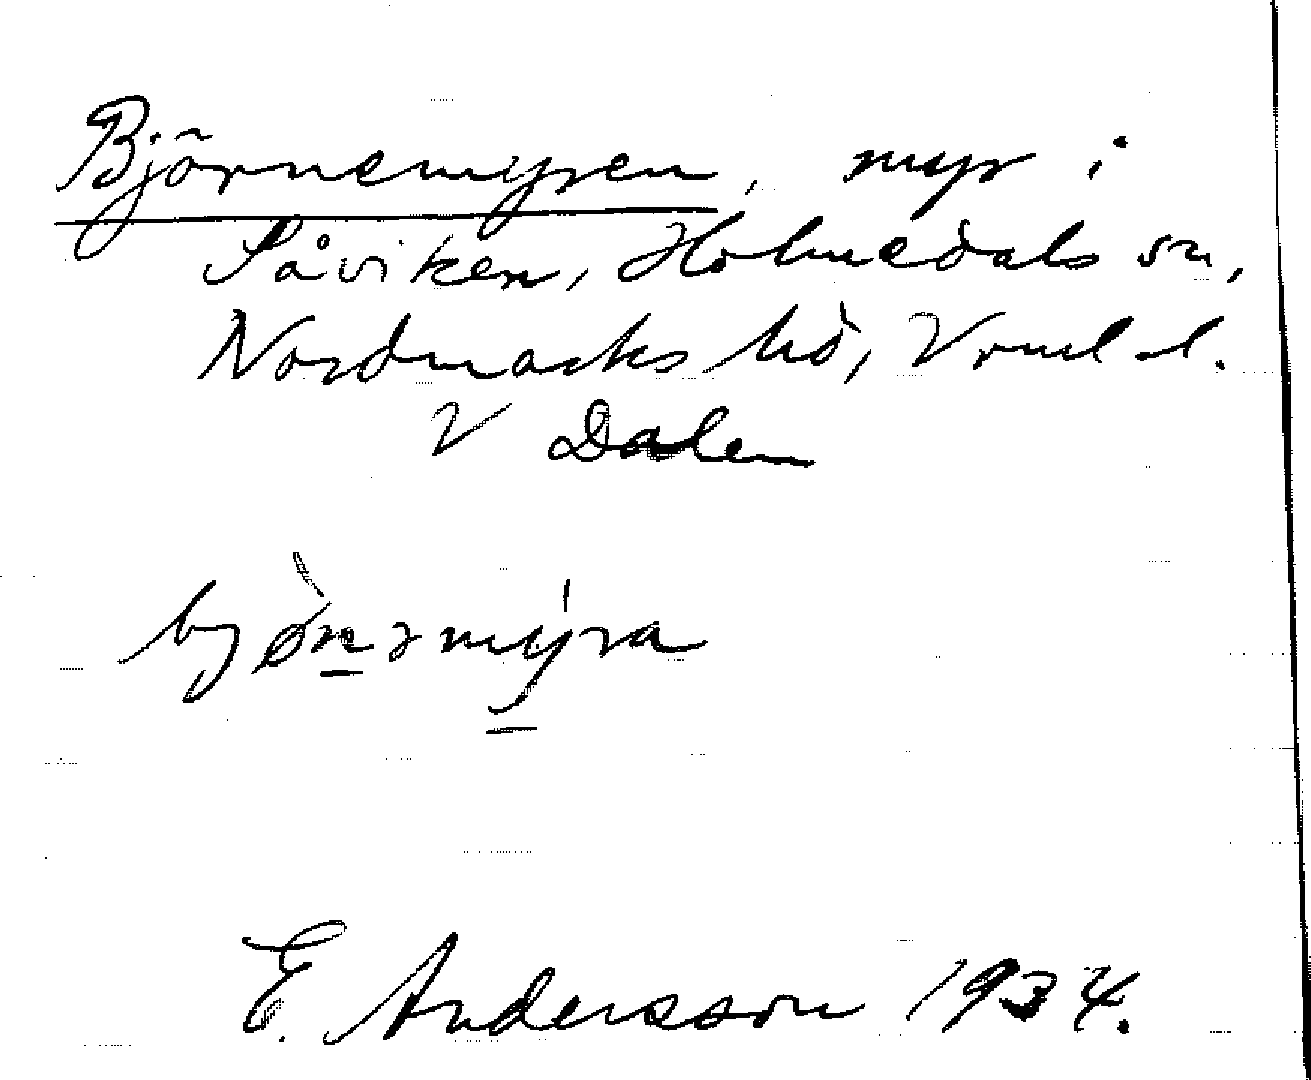 Björnemyren, myr i
Såviken, Holmedals sn,
Nordmarks hd, Vrml l.
V Dalen
bjø̀nəmýra
E. Andersson 1934.